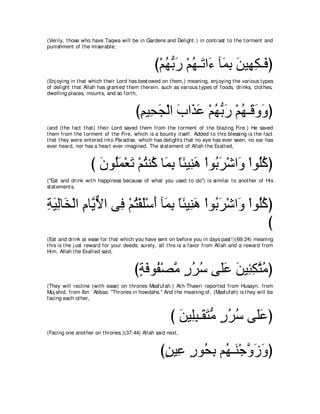 (Verily, those who have Taqwa will be in Gardens and Delight.) in contrast to the torment and
punishment of the miserable;
(فَـكِهِينَ بِمَآ ءَاتَـهُمْ رَبُّهُمْ)
(Enjoying in that which their Lord has bestowed on them,) meaning, enjoying the various types
of delight that Allah has granted them therein, such as various types of foods, drinks, clothes,
dwelling places, mounts, and so forth,
(وَوَقَـهُمْ رَبُّهُمْ عَذَابَ الْجَحِيمِ)
(and (the fact that) their Lord saved them from the torment of the blazing Fire.) He saved
them from the torment of the Fire, which is a bounty itself. Added to this blessing is the fact
that they were entered into Paradise, which has delights that no eye has ever seen, no ear has
ever heard, nor has a heart ever imagined. The statement of Allah the Exalted,
(كُلُواْ وَاشْرَبُواْ هَنِيئَاً بِمَا كُنتُمْ تَعْمَلُونَ )
("Eat and drink with happiness because of what you used to do") is similar to another of His
statements,
(كُلُواْ وَاشْرَبُواْ هَنِيئَاً بِمَآ أَسْلَفْتُمْ فِى الاٌّيَّامِ الْخَالِيَةِ
)
(Eat and drink at ease for that which you have sent on before you in days past!)(69:24) meaning
this is the just reward for your deeds; surely, all this is a favor from Allah and a reward from
Him. Allah the Exalted said,
(مُتَّكِئِينَ عَلَى سُرُرٍ مَّصْفُوفَةٍ)
(They will recline (with ease) on thrones Masfufah.) Ath-Thawri reported from Husayn, from
Mujahid, from Ibn `Abbas: "Thrones in howdahs.'' And the meaning of, (Masfufah) is they will be
facing each other,
(عَلَى سُرُرٍ مُّتَقَـبِلِينَ )
(Facing one another on thrones.)(37:44) Allah said next,
(وَزَوَّجْنَـهُم بِحُورٍ عِينٍ)